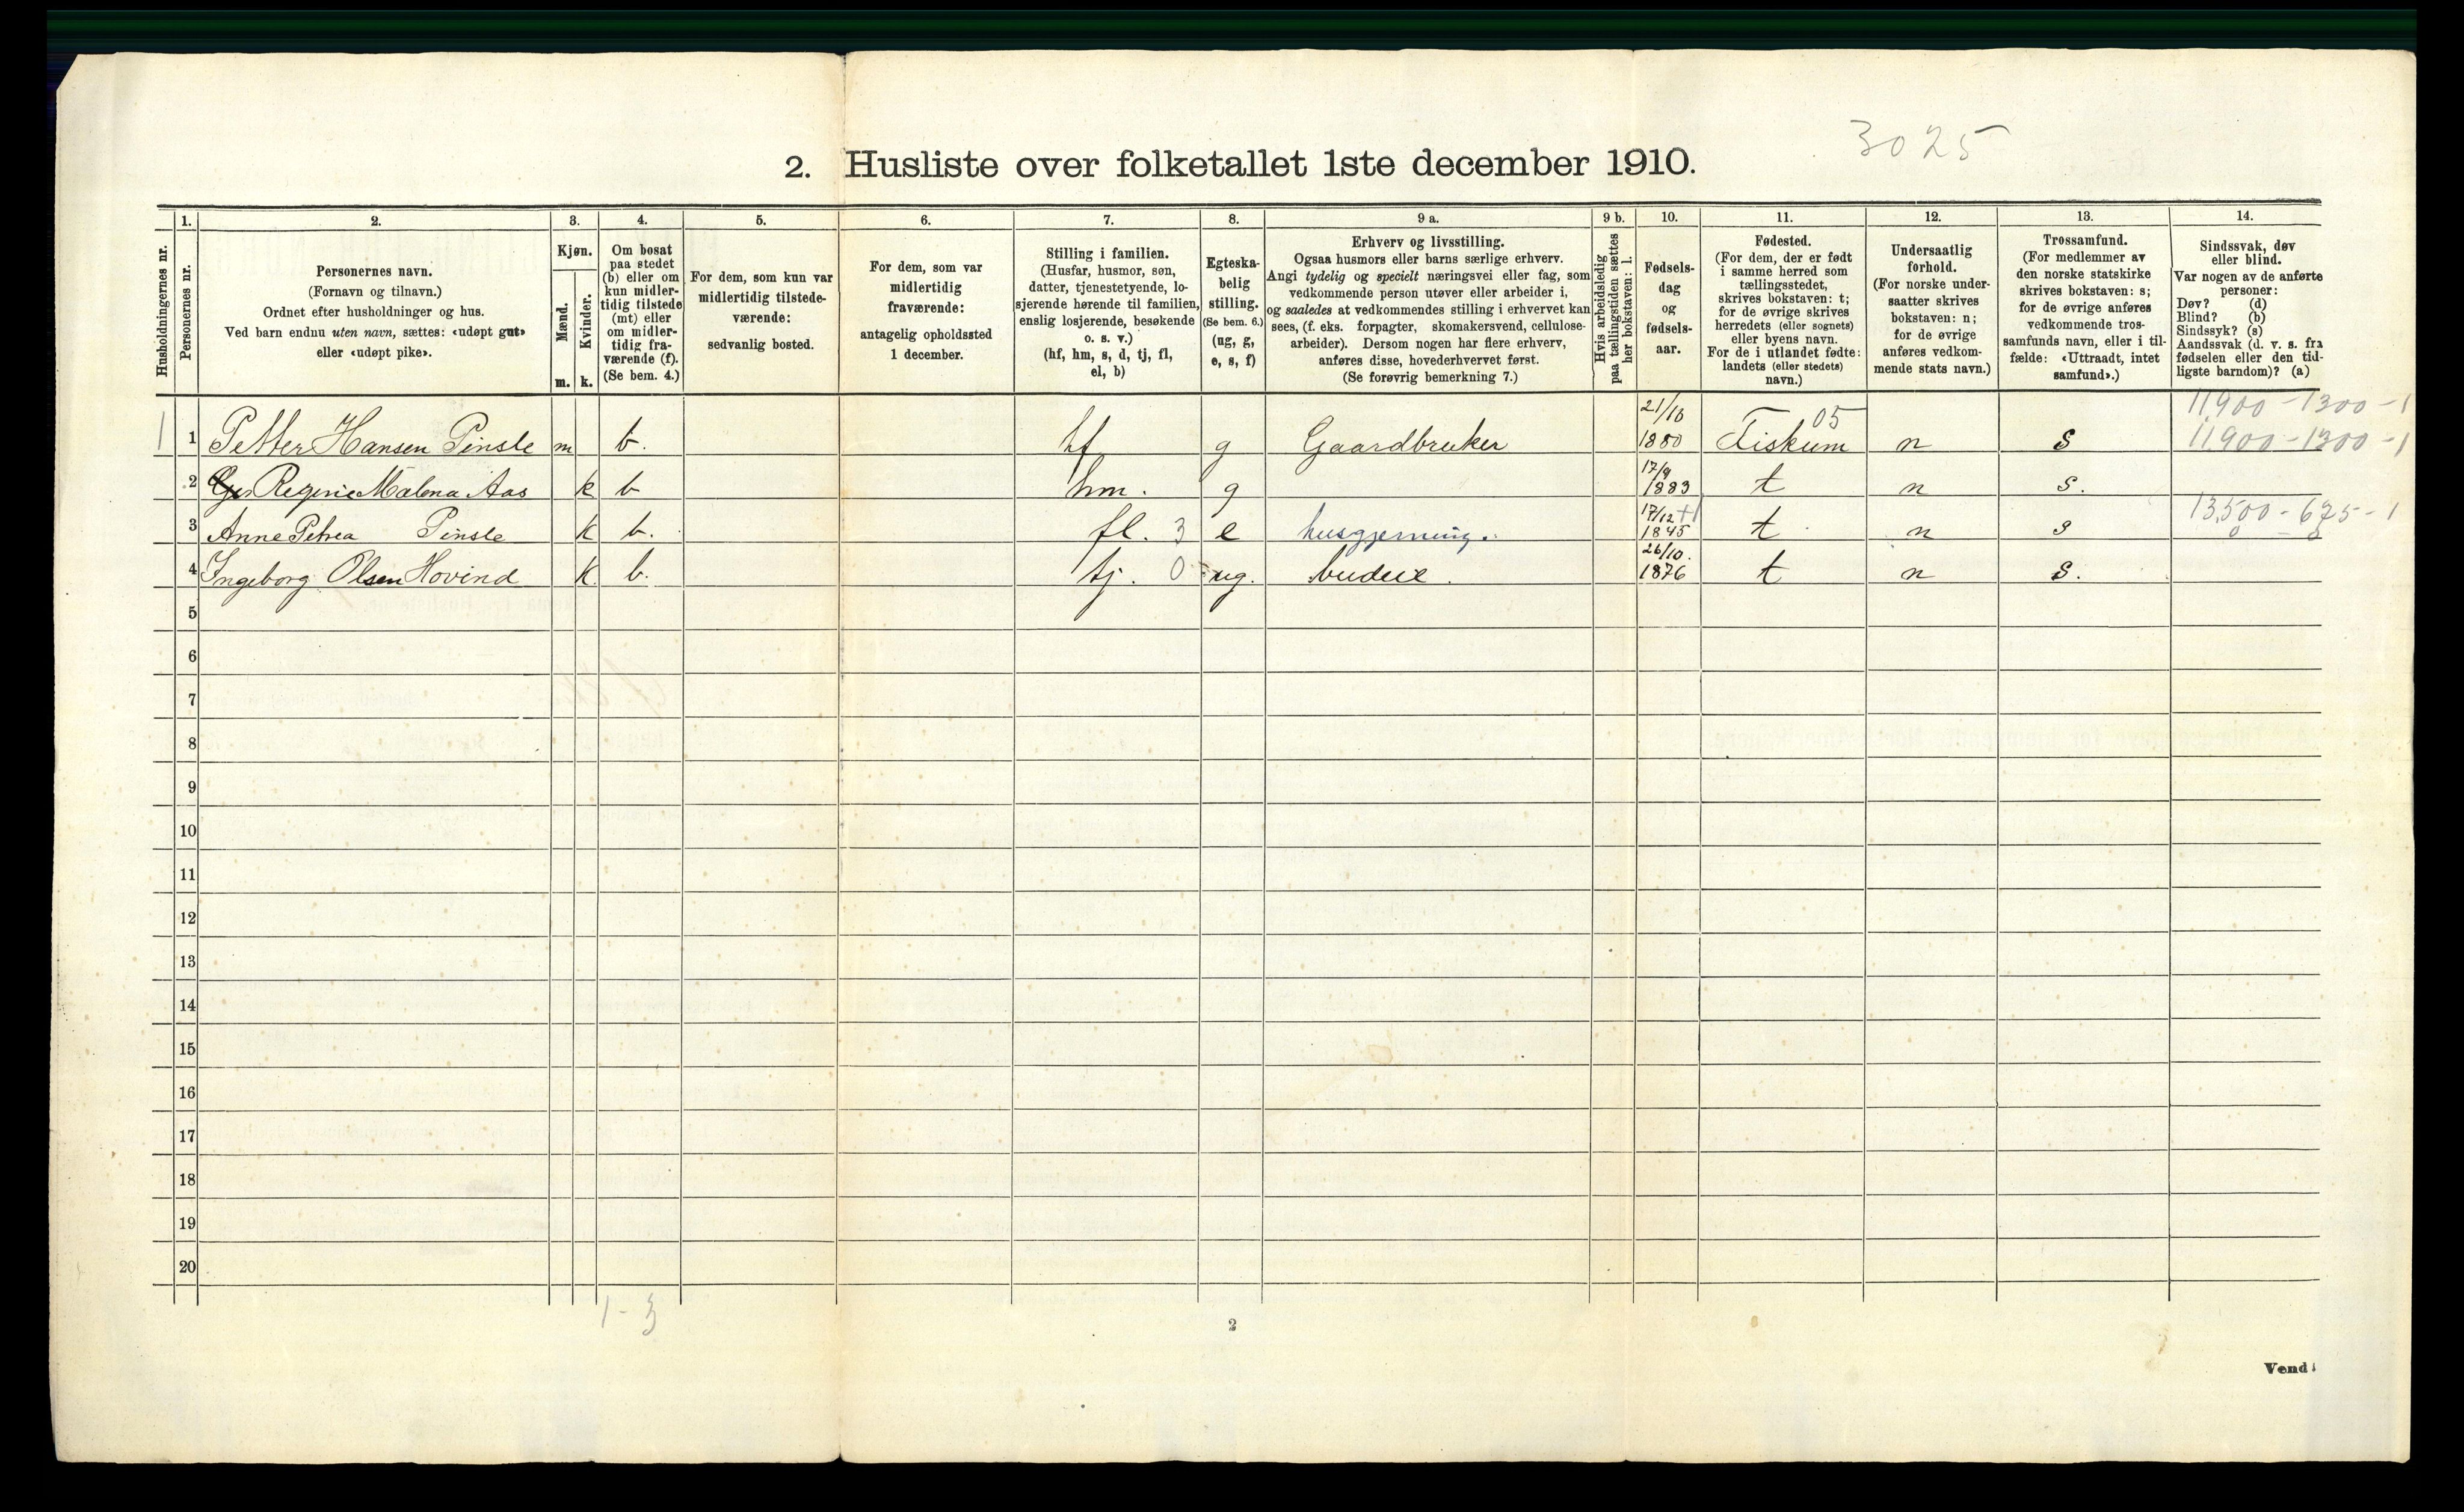 3025
2. Husliste over folketallet 1ste december 1910.
Husholdningernes nr.
1. Personernes nr.
2. Personernes navn.
(Fornavn og tilnavn.)
Ordnet efter husholdninger og hus.
Ved barn endnu uten navn, sættes: «udøpt gut»
eller «udøpt pike».
3. Kjøn.
Mænd. m.
Kvinder. k.
4. Om bosat
paa stedet
(b) eller om
kun midler-
tidig tilstede
(mt) eller
om midler-
tidig fra-
værende (f).
(Se bem. 4.)
5. For dem, som kun var
midlertidig tilstede-
værende:
sedvanlig bosted.
6. For dem, som var
midlertidig
fraværende:
antagelig opholdssted
1 december.
7. Stilling i familien.
(Husfar, husmor, søn,
datter, tjenestetyende, lo-
sjerende hørende til familien,
enslig losjerende, besøkende
o. s. v.)
(hf, hm, s, d, tj, fl,
el, b)
8. Egteska-
belig
stilling.
(Se bem. 6.)
(ug, g,
e, s, f)
9 a. Erhverv og livsstilling.
Ogsaa husmors eller barns særlige erhverv.
Angi tydelig og specielt næringsvei eller fag, som
vedkommende person utøver eller arbeider i,
og saaledes at vedkommendes stilling i erhvervet kan
sees, (f. eks. forpagter, skomakersvend, cellulose-
arbeider). Dersom nogen har flere erhverv,
anføres disse, hovederhvervet først.
(Se forøvrig bemerkning 7.)
9 b. Hvis arbeidsledig
paa tællingstiden sættes
her bokstaven: l.
10. Fødsels-
dag
og
fødsels-
aar.
11. Fødested.
(For dem, der er født
i samme herred som
tællingsstedet,
skrives bokstaven: t;
for de øvrige skrives
herredets (eller sognets)
eller byens navn.
For de i utlandet fødte:
landets (eller stedets)
navn.)
12. Undersaatlig
forhold.
(For norske under-
saatter skrives
bokstaven: n;
for de øvrige
anføres vedkom-
mende stats navn.)
13. Trossamfund.
(For medlemmer av
den norske statskirke
skrives bokstaven: s;
for de øvrige anføres
vedkommende tros-
samfunds navn, eller i til-
fælde: «Uttraadt, intet
samfund».)
14. Sindssvak, døv
eller blind.
Var nogen av de anførte
personer:
Døv? (d)
Blind? (b)
Sindssyk? (s)
Aandssvak (d. v. s. fra
fødselen eller den tid-
ligste barndom)? (a)
11,900 - 1300 - 1
1 1 Petter Hansen Pinsle m b. hf g Gaardbruker 21/10 1880 Fiskum 05 n s 11,900 - 1300 - 1
2 Regine Malena Aas k b hm. g 17/9 1883 t n s.
3 Anne Petrea Pinsle k b. fl. 3 e husgjerning. 17/12 1845 t n s 13,500 - 675 - 1
4 Ingeborg Olsen Hovind k. b. tj. 0 ug. budeie. 26/10. 1876 t n s.
5
6
7
8
9
10
11
12
13
14
15
16
17
18
19
20
1 - 3
2
Vend!